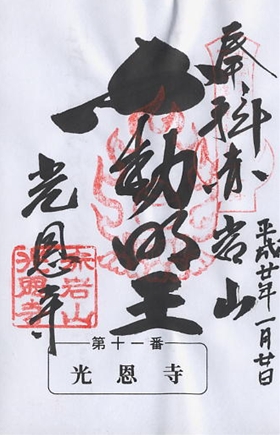 奉拝 赤岩山
平成廿年一月廿日
不動明王
光恩寺
赤岩山
光恩寺
第十一番
光恩寺